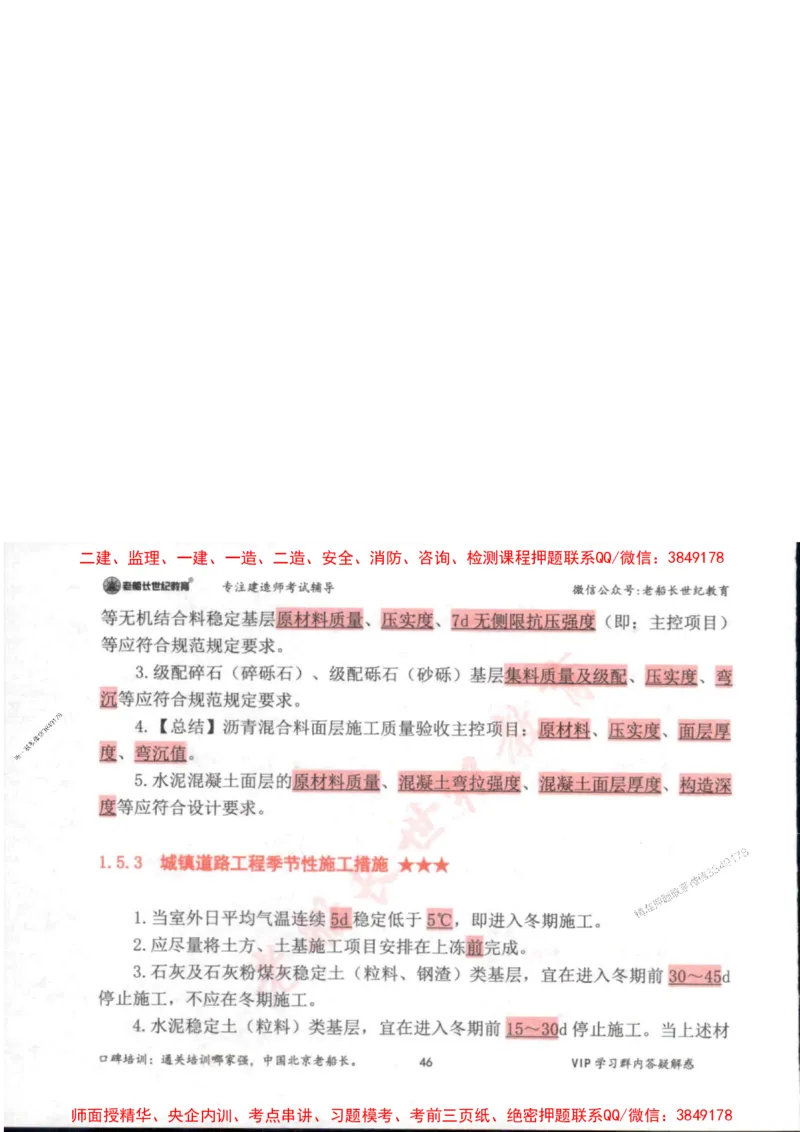 二建、监理、一建、一造、二造、安全、消防、咨询、检测课程押题联系QQ/微信：3849178
老船长世纪教育® 专注建造师考试辅导 微信公众号:老船长世纪教育
等无机结合料稳定基层原材料质量、压实度、7d 无侧限抗压强度（即：主控项目）
等应符合规范规定要求。
3.级配碎石（碎砾石）、级配砾石（砂砾）基层集料质量及级配、压实度、弯
沉等应符合规范规定要求。
4.【总结】沥青混合料面层施工质量验收主控项目：原材料、压实度、面层厚
度、弯沉值。
5.水泥混凝土面层的原材料质量、混凝土弯拉强度、混凝土面层厚度、构造深
度等应符合设计要求。
1.5.3 城镇道路工程季节性施工措施 ★★★
1.当室外日平均气温连续 5d 稳定低于 5℃，即进入冬期施工。
2.应尽量将土方、土基施工项目安排在上冻前完成。
3.石灰及石灰粉煤灰稳定土（粒料、钢渣）类基层，宜在进入冬期前 30～45d
停止施工，不应在冬期施工。
4.水泥稳定土（粒料）类基层，宜在进入冬期前 15～30d 停止施工。当上述材
口碑培训：通关培训哪家强，中国北京老船长。 46 VIP 学习群内答疑解惑
师面授精华、央企内训、考点串讲、习题模考、考前三页纸、绝密押题联系QQ/微信：3849178